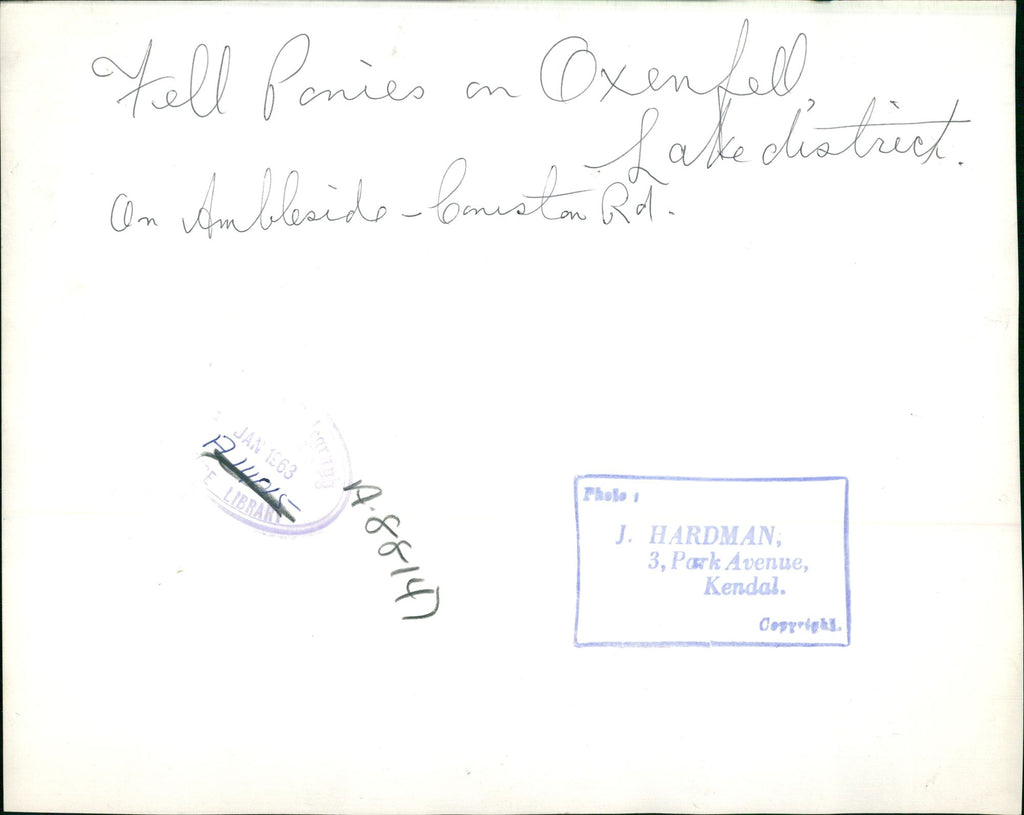 Fell Ponies on Oxenfell,
Lake district.
On Ambleside - Coniston Rd.
JAN 1963
LIBRARY
A.88147
Photo :
J. HARDMAN,
3, Park Avenue,
Kendal.
Copyright.